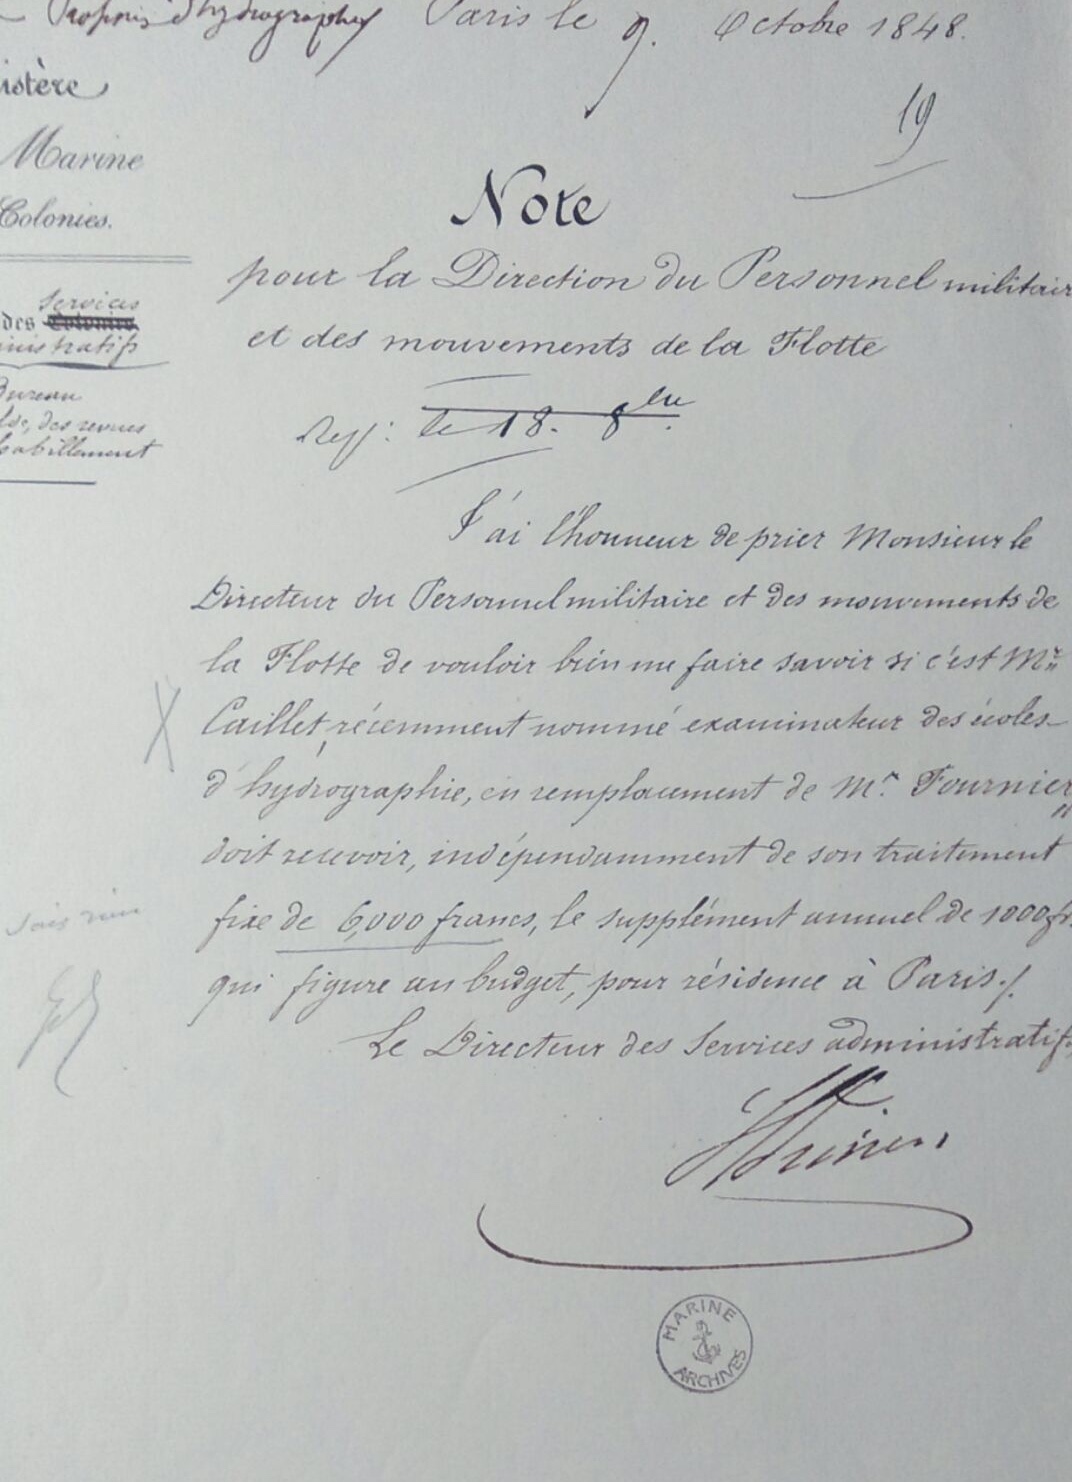 d'hydrographie Paris le 9. Octobre 1848.
19
istère
Marine
Colonies.
Services
des Colonies
inistratifs
Bureau
des revues
habillement
Note
pour la Direction du Personnel militair
et des mouvements de la Flotte
le 18. 8bre
J'ai l'honneur de prier Monsieur le
Directeur du Personnel militaire et des mouvements de
la Flotte de vouloir bien me faire savoir si c'est Mr
Caillet, récemment nommé examinateur des écoles
d'hydrographie, en remplacement de Mr. Fournier
doit recevoir, indépendamment de son traitement
fixe de 6,000 francs, le supplément annuel de 1000 fr.
qui figure au budget, pour résidence à Paris./.
Le Directeur des Services administratifs
MARINE
ARCHIVES